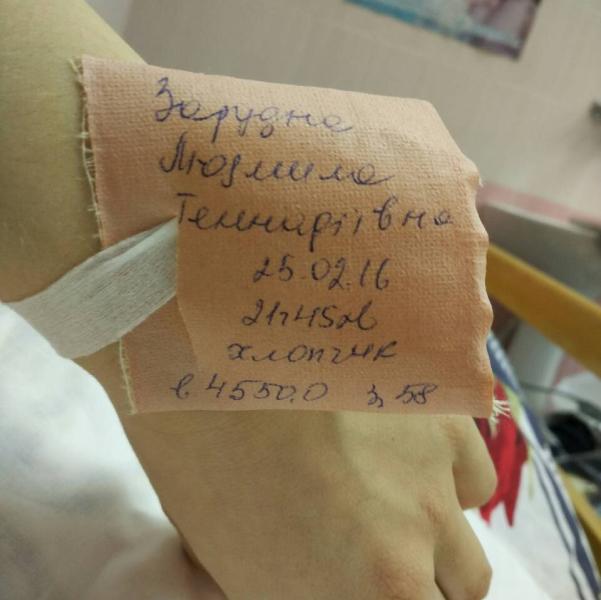 Зарудна
Людмила
Геннадіївна
25.02.16
21ч45хв
хлопчик
в 4550,0 з 58